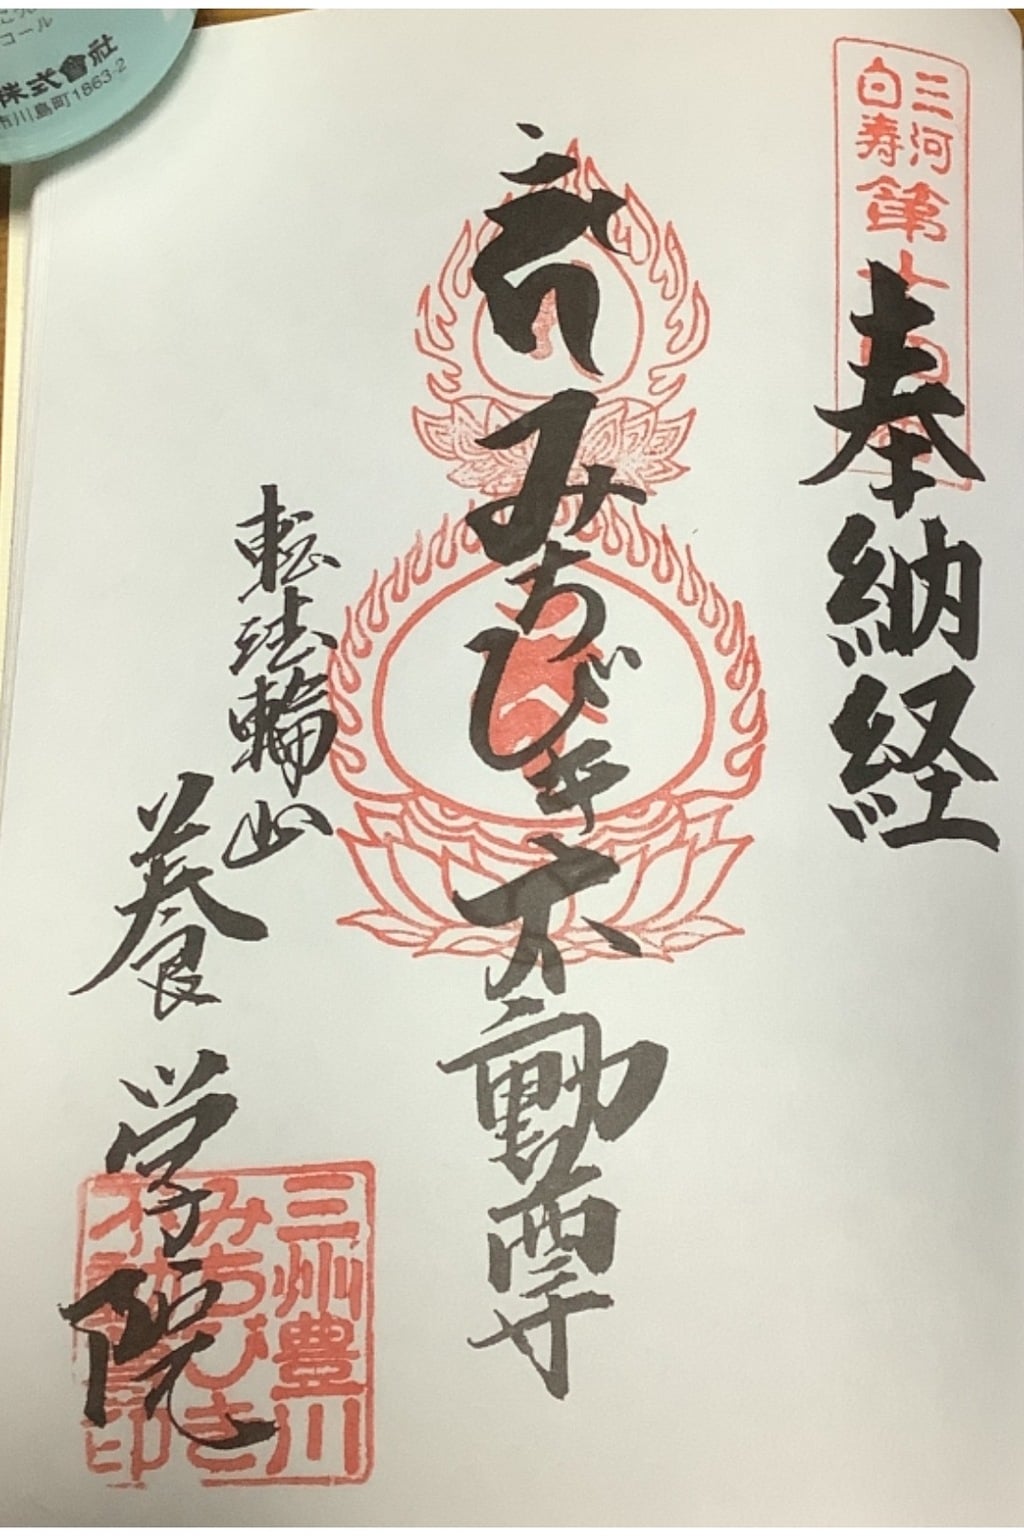 三河
白寿
第十四番
奉納経
みちびき不動尊
転法輪山
養学院
三州豊川
みちびき
不動尊印
コール
株式會社
市川島町1863-2